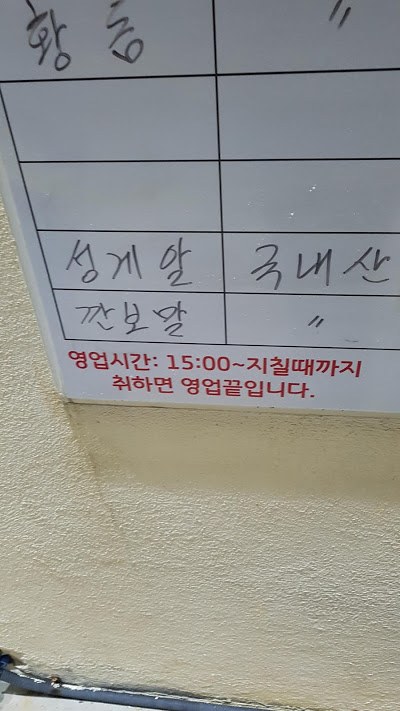 황 듬 〃
성게알 국내산
깐보말 〃
영업시간: 15:00~지칠때까지
취하면 영업끝입니다.